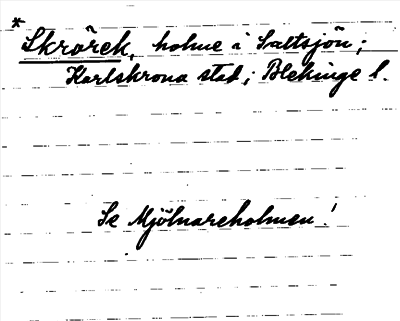 * Skrörek, holme i Saltsjön;
Karlskrona stad; Blekinge l.
Se Mjölnareholmen!